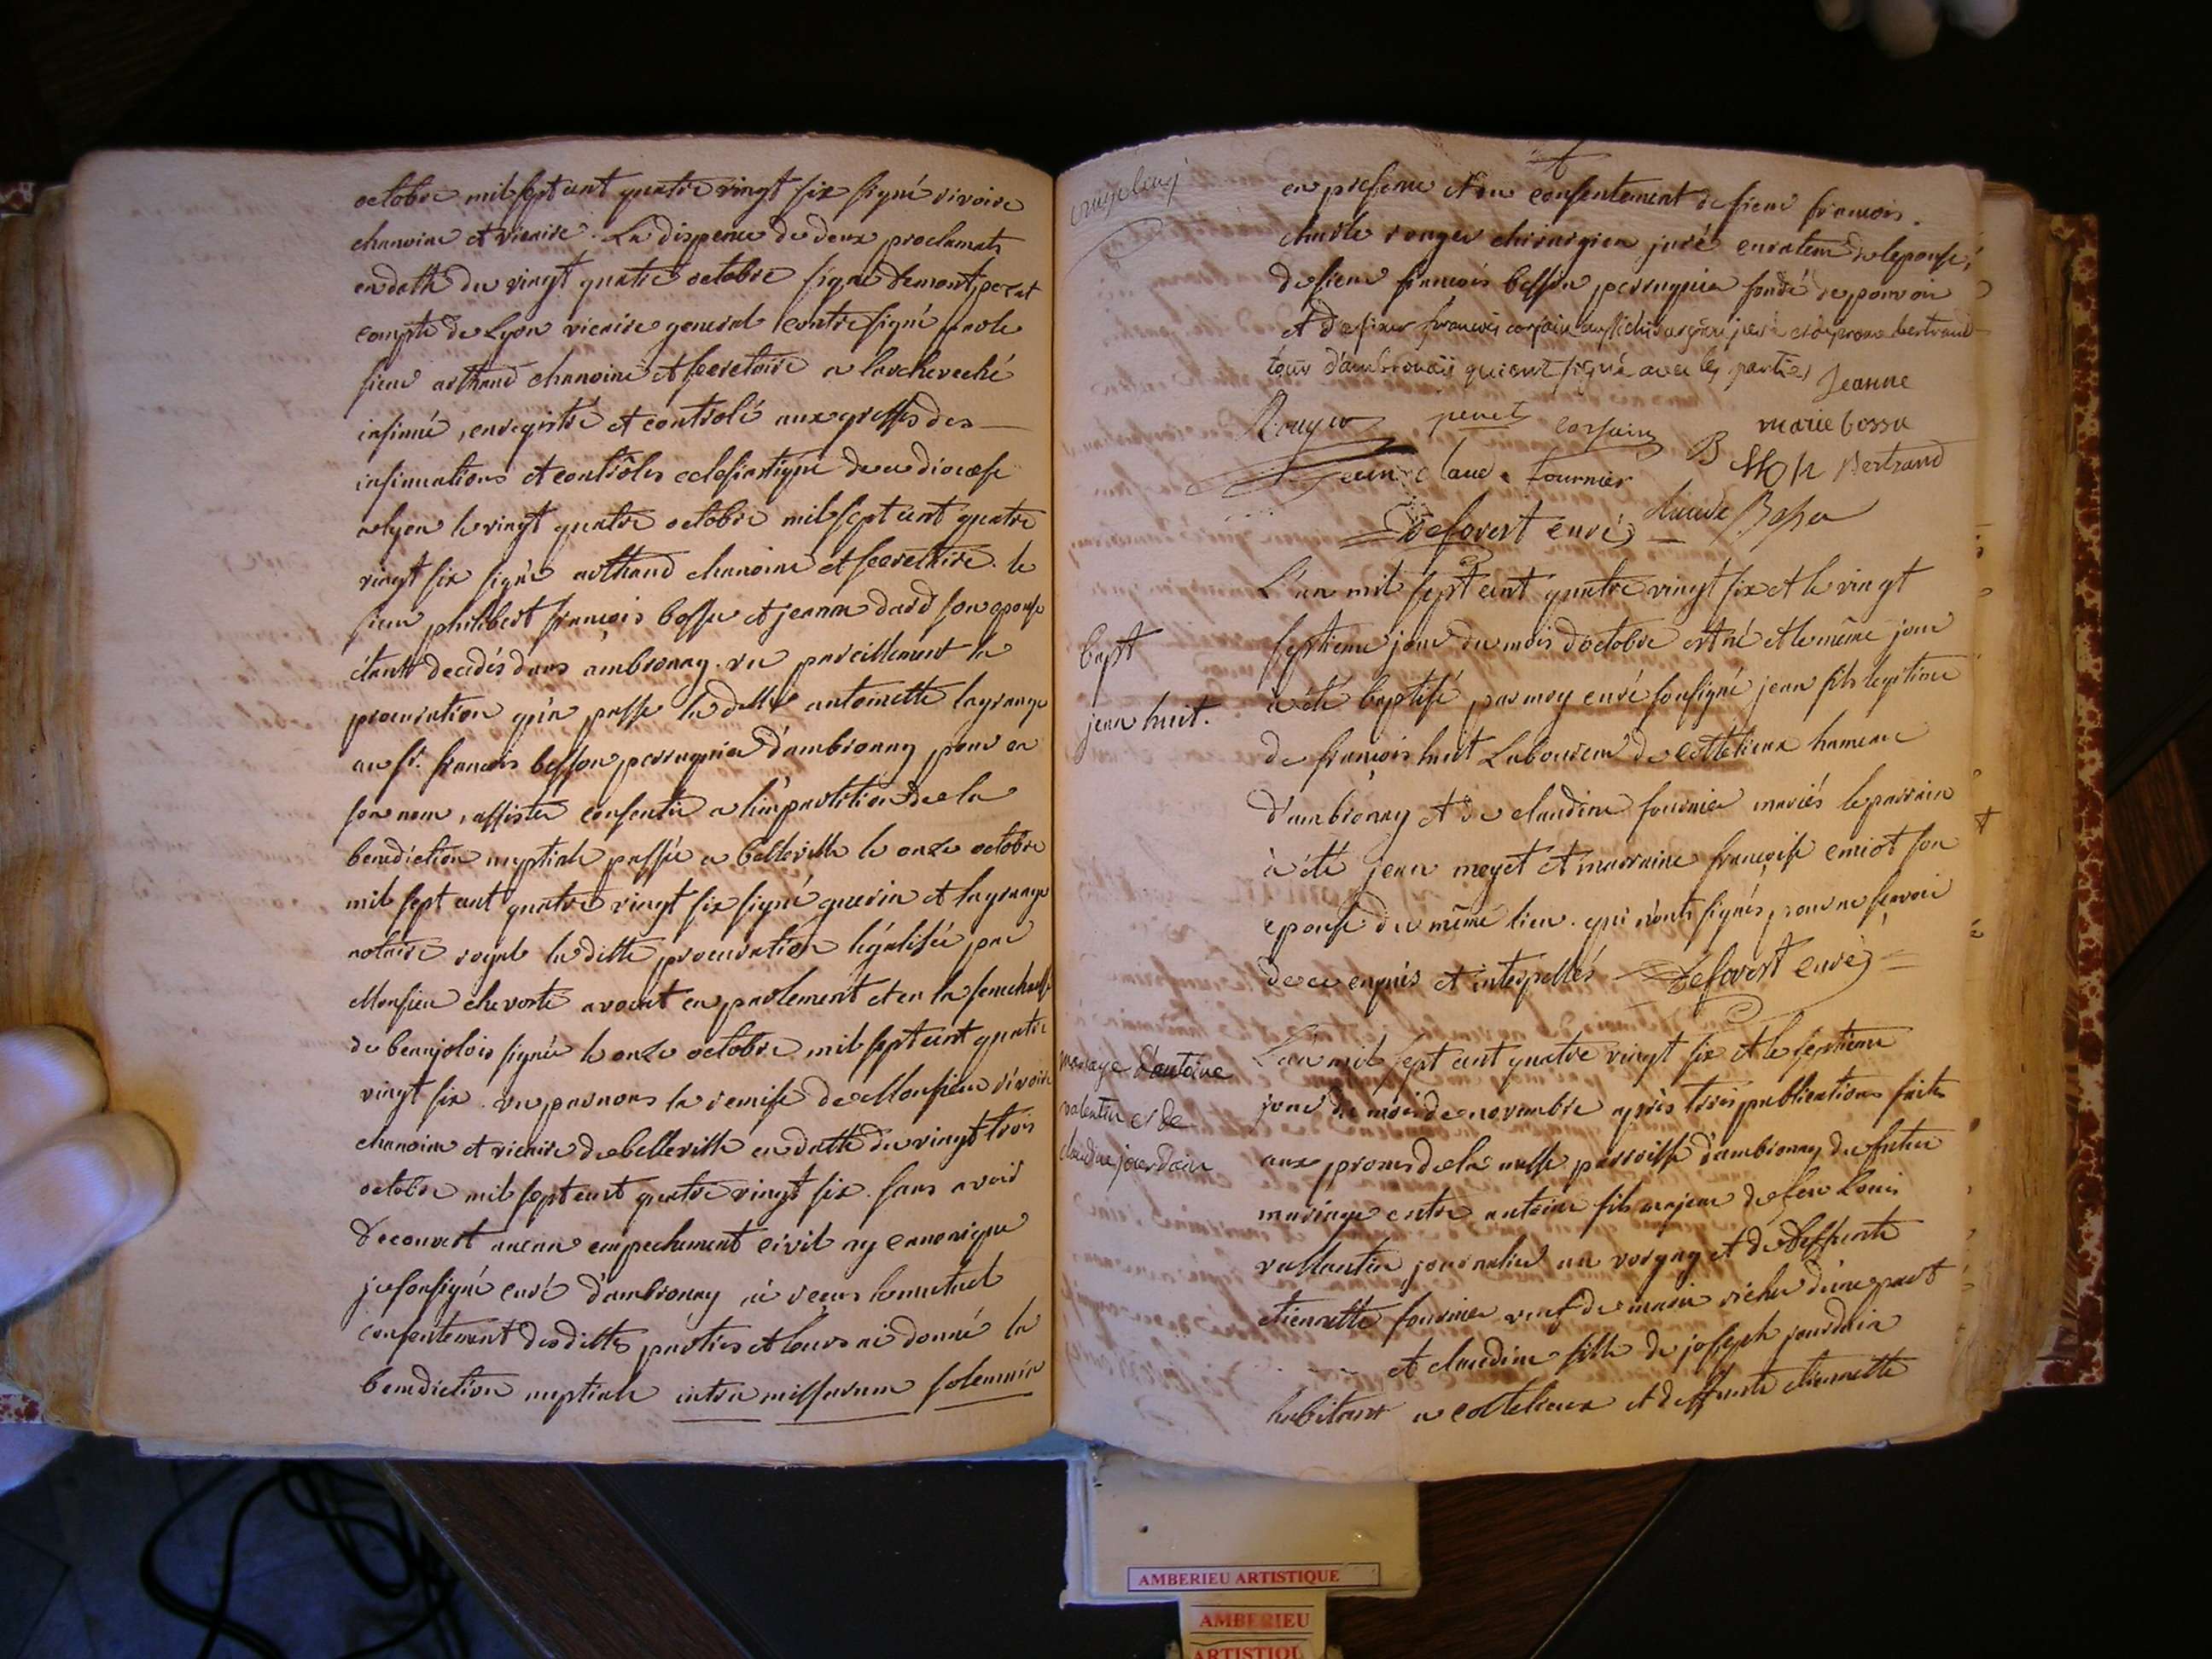 octobre mil sept cent quatre vingt six signé rivoire
chanoine et vicaire. La dispense de deux proclamats
en datte du vingt quatre octobre signé Demont
compte de Lyon vicaire general contresigné par le
sieur arthaud chanoine et secretaire a larcheveché
insinué, enregistré et controlé aux greffes des
insinuations et contrôles eclesiastique de ce diocese
a lyon le vingt quatre octobre mil sept cent quatre
vingt six signé arthaud chanoine et secretaire. le
sieur philibert françois bossu et jeanne dard son epouse
étant decedés dans ambronay. vu pareillement la
procuration qu'a passé la dlle antoinette lagrange
au sr. francois besson perruquier d'ambronay pour en
son nom, assister consentir a l'impartition de la
benediction nuptiale passée a belleville le onze octobre
mil sept cent quatre vingt six signé guerin et lagrange
notaire royal la ditte procuration légalisée par
Monsieur chevorte avocat en parlement et en la senechaussée
de beaujolois signée le onze octobre mil sept cent quatre
vingt six. vu la remise de Monsieur rivoire
chanoine et vicaire de belleville en datte du vingt trois
octobre mil sept cent quatre vingt six. sans avoir
decouvert aucun empechement civil ny canonique
je sousigné curé d'ambronay ai reçus le mutuel
consentement desdittes parties et leurs ai donné la
benediction nuptiale intra missarum solemnia
en presence et du consentement de sieur francois
charle rouger chirurgien juré curateur de lepouse,
de sieur françois besson perruquier fondé de pouvoir
et de sieur francois corsain aussi chirurgien juré et de bertrand
tous d'ambronay qui ont signé avec les parties Jeanne
Rouger penet corsain marie bossu
Jean claude fournier B sson Bertrand
Defovert curé
bapt
jean huit.
L'an mil sept cent quatre vingt six et le vingt
septieme jour du mois d'octobre est né et le même jour
a été baptisé par moy curé sousigné jean fils legitime
de françois huit Laboureur de cottelieux hameau
d'ambronay et de claudine fournier mariés le parrain
à été jean moyet et marraine françoise emiot son
epouse du même lieu. qui n'ont signés pour ne sçavoir
de ce enquis et interpellés Defovert curé
mariage d'antoine
valentin et de
claudine jourdain
L'an mil sept cent quatre vingt six et le septieme
jour du mois de novembre après trois publications faites
aux prones de la messe parroisse d'ambronay du futur
mariage entre antoine fils majeur de feu Louis
vallantin journalier au vorgnay et de deffunte
etiennette fournier veuf de marie richer d'une part
et claudine fille de joseph jourdain
habitant a cottelieux et deffunte etiennette